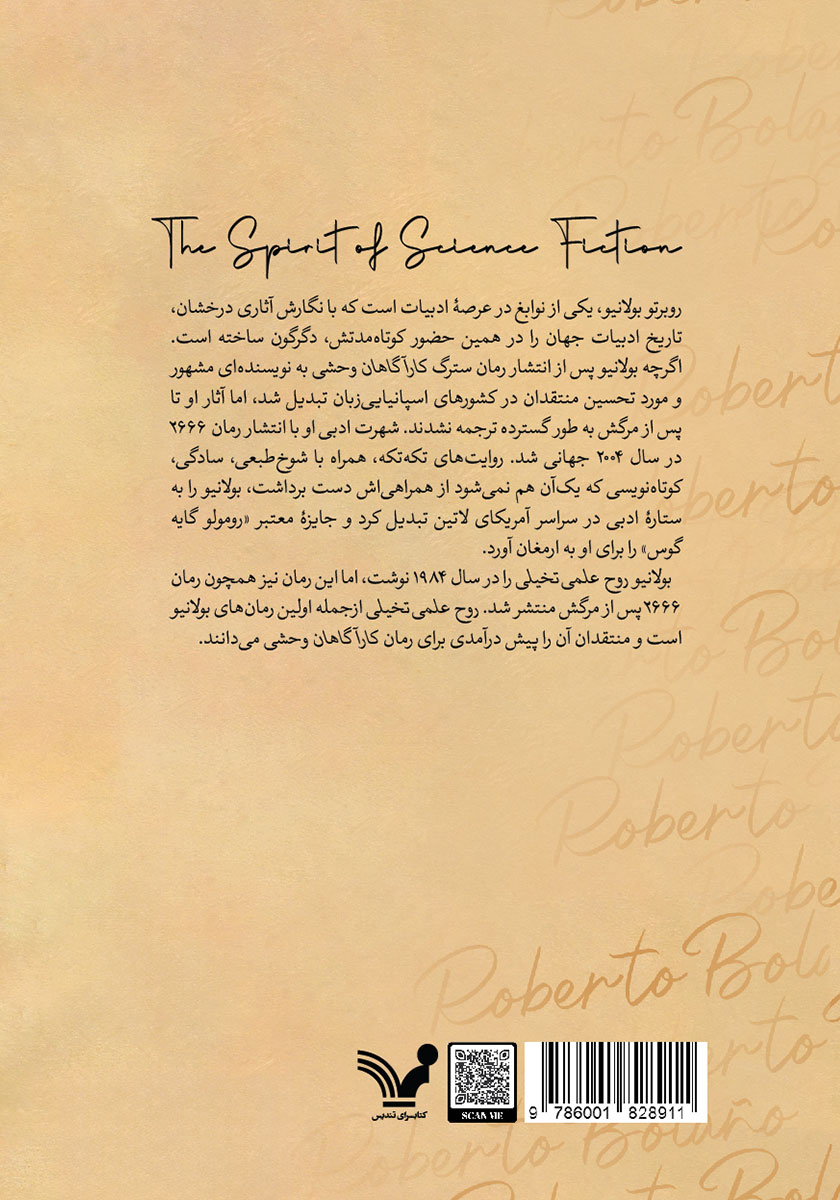 The Spirit of Science Fiction
روبرتو بولانیو، یکی از نوابغ در عرصهٔ ادبیات است که با نگارش آثاری درخشان،
تاریخ ادبیات جهان را در همین حضور کوتاه‌مدتش، دگرگون ساخته است.
اگرچه بولانیو پس از انتشار رمان سترگ کارآگاهان وحشی به نویسنده‌ای مشهور
و مورد تحسین منتقدان در کشورهای اسپانیایی‌زبان تبدیل شد، اما آثار او تا
پس از مرگش به طور گسترده ترجمه نشدند. شهرت ادبی او با انتشار رمان ۲۶۶۶
در سال ۲۰۰۴ جهانی شد. روایت‌های تکه‌تکه، همراه با شوخ‌طبعی، سادگی،
کوتاه‌نویسی که یک‌آن هم نمی‌شود از همراهی‌اش دست برداشت، بولانیو را به
ستارهٔ ادبی در سراسر آمریکای لاتین تبدیل کرد و جایزهٔ معتبر «رومولو گایه
گوس» را برای او به ارمغان آورد.
بولانیو روح علمی‌تخیلی را در سال ۱۹۸۴ نوشت، اما این رمان نیز همچون رمان
۲۶۶۶ پس از مرگش منتشر شد. روح علمی‌تخیلی ازجمله اولین رمان‌های بولانیو
است و منتقدان آن را پیش درآمدی برای رمان کارآگاهان وحشی می‌دانند.
Roberto
Roberto Bola
Roberto
Roberto
Roberto
Roberto
Roberto Bola
Roberto Bolaño
Roberto Bola
کتابسرای تندیس
SCAN ME
9 786001 828911